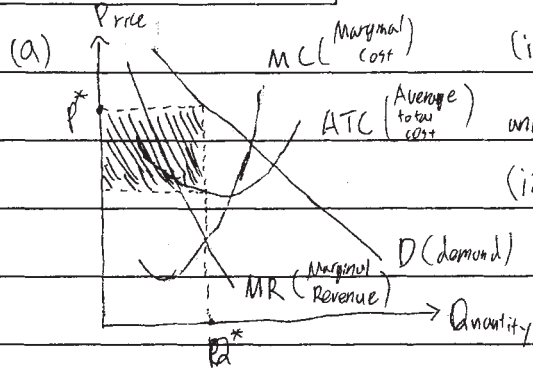 Price
(a)
MC (Marginal Cost)
(i
P*
ATC (Average total cost)
un
(i
D (demand)
MR (Marginal Revenue)
Quantity
Q*